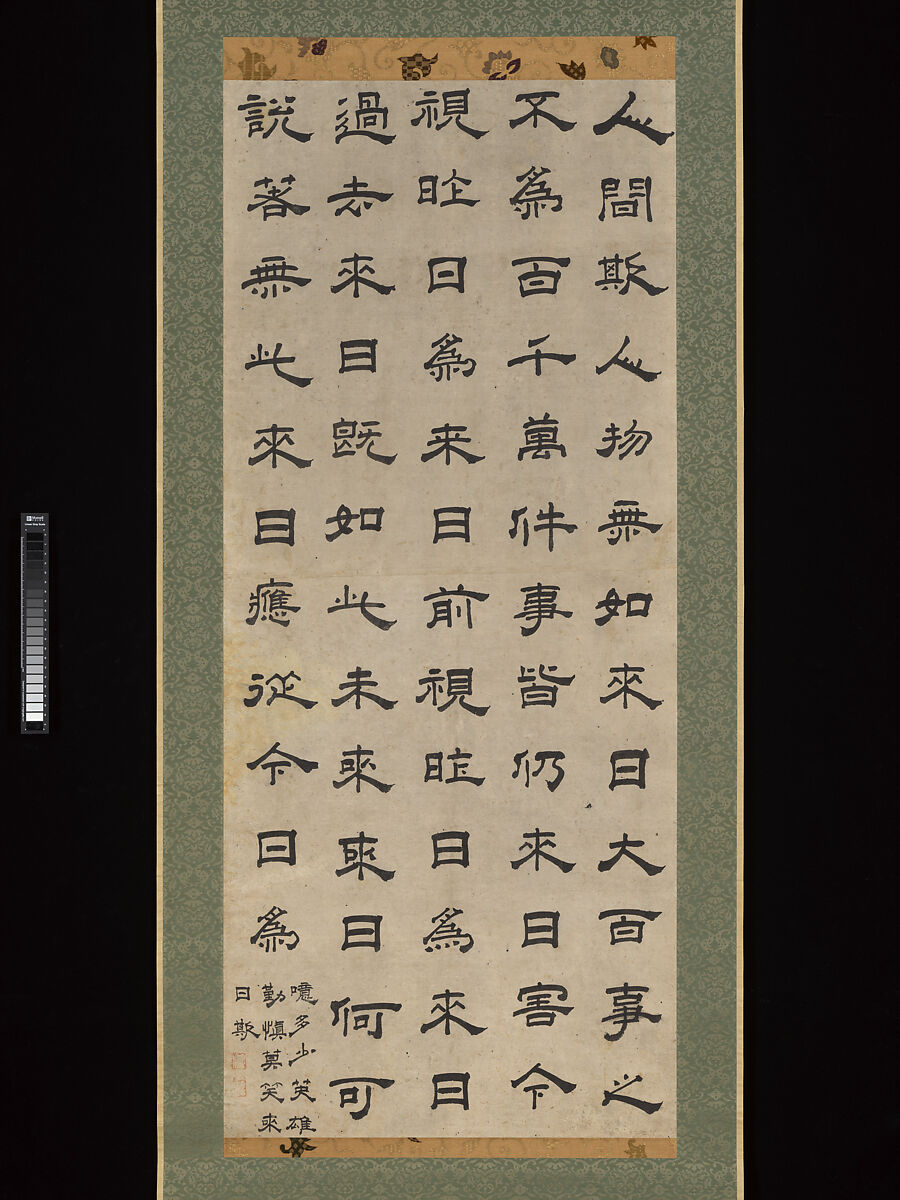 人間斯人物無如來日大百事之
不為百千萬件事皆仍來日害今
視昨日為来日前視昨日為來日
過去來日既如此未來來日何可
說著無此來日應從今日為
噫多少英雄
勤慎莫笑來
日斯